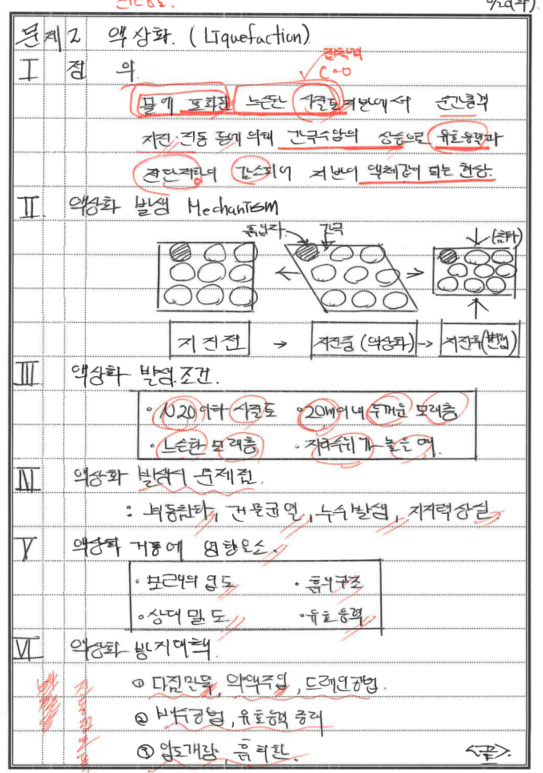 9/2(화).
문제2 액상화. (Liquefaction)
점착력
C=0
I 정 의
물에 포화된 느슨한 사질토 지반에서 순간충격
지진·진동 등에 의해 간극수압의 상승으로 유효응력과
전단저항이 감소되어 지반이 액체같이 되는 현상.
II. 액상화 발생 Mechanism
흙입자. 간극
(침하)
지진전 → 지진중 (액상화) → 지진후(변형)
III 액상화 발생조건.
· N20이하 사질토 · 20m이내 두꺼운 모래층
· 느슨한 모래층 · 지하수위가 높은 여.
IV 액상화 발생시 문제점.
: 부등침하, 건물균열, 누수발생, 지지력상실.
V 액상화 거동에 영향요소.
· 모래의 입도 · 흙의구조
· 상대밀도 · 유효응력
VI 액상화 방지대책.
① 다짐말뚝, 약액주입, 드레인공법.
② 배수공법, 유효응력 증대
③ 입도개량 흙치환. <끝>.